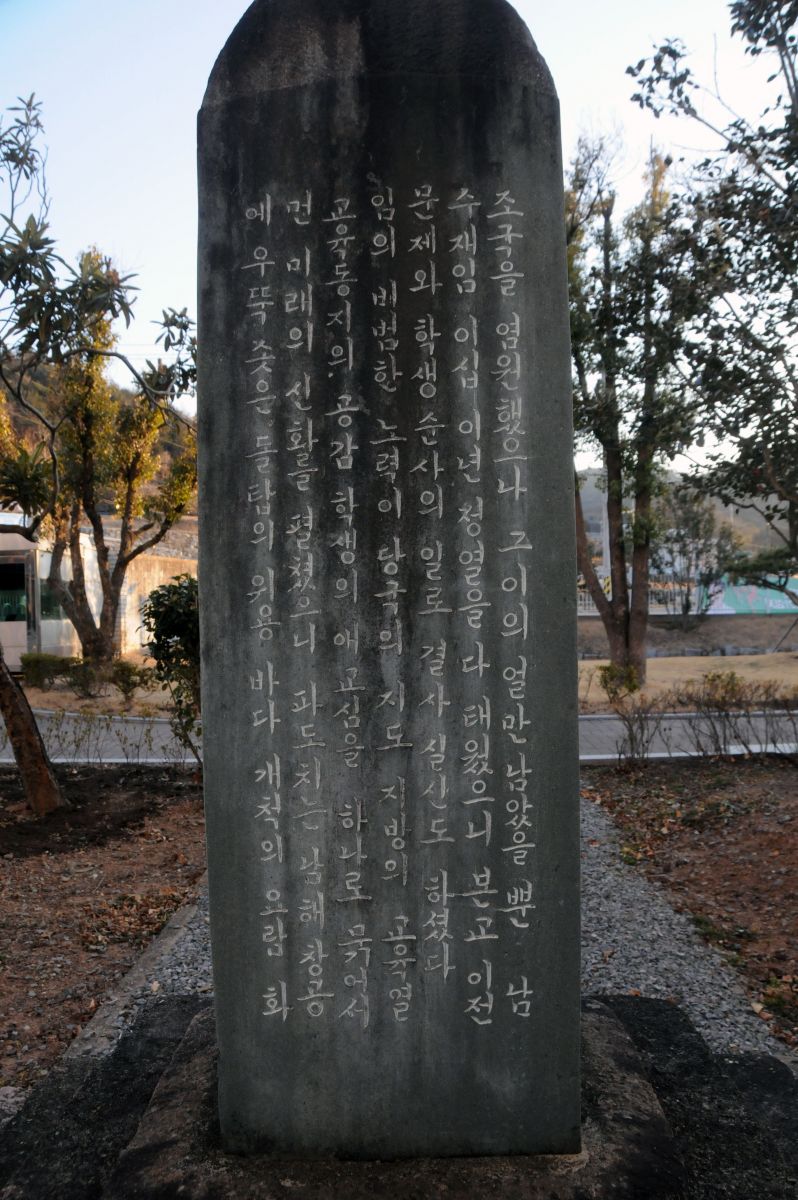 조국을 염원했으나 그이의 얼만 남았을 뿐 남
수재임 이십 이년 정열을 다 태웠으니 본교 이전
문제와 학생 순사의 일로 결사 실신도 하셨다
임의 비범한 노력이 당국의 지도 지방의 교육열
교육동지의 공감 학생의 애교심을 하나로 묶어서
먼 미래의 신화를 펼쳤으니 파도치는 남해 창공
에 우뚝 솟은 돌탑의 위용 바다 개척의 요람 화